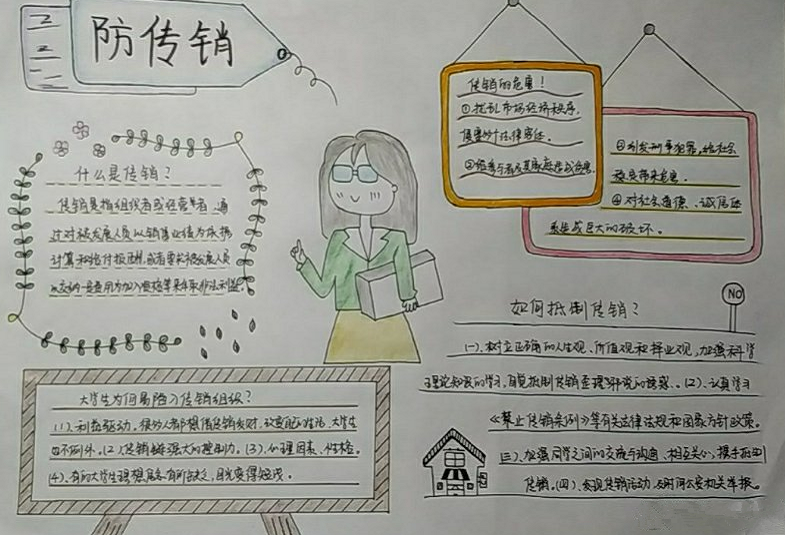 防传销
什么是传销？
传销是指组织者或经营者，通
过对被发展人员以销售业绩为依据
计算和给付报酬，或者要求被发展人员
以交纳一定费用为加入资格等来牟取非法利益。
传销的危害！
①扰乱市场经济秩序，
②给参与者及其家庭造成伤害，
③引发刑事犯罪，给社会
稳定带来危害。
④对社会道德、诚信体
系造成巨大的破坏。
NO
如何抵制传销？
(一)、树立正确的人生观、价值观和择业观，加强科学
理论知识的学习，自觉抵制传销歪理邪说的诱惑。(2)、认真学习
《禁止传销条例》等有关法律法规和国家方针政策。
(三)、加强同学之间的交流与沟通、相互关心，携手抵制
传销。(四)、发现传销活动，及时向公安机关举报。
大学生为何易陷入传销组织？
(1)、利益驱动，很多人都想借传销发财，改变自己的生活，大学生
也不例外。(2)、传销具有强大的控制力。(3)、心理因素、性格。
(4)、有的大学生理想层次有所缺乏，目光变得短浅。